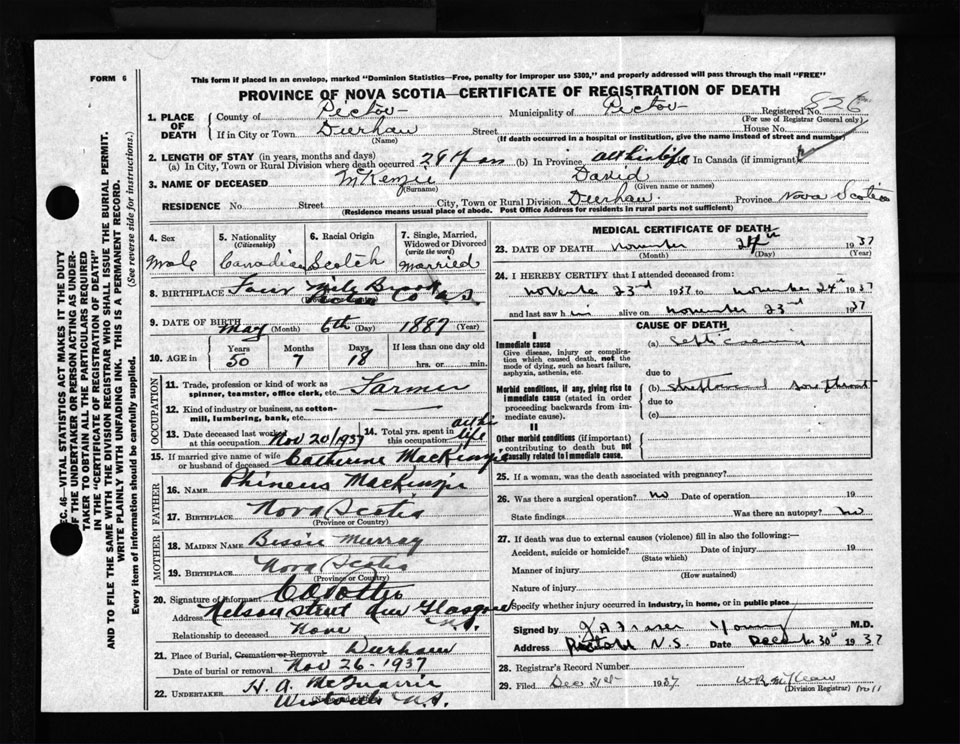 FORM 6
This form if placed in an envelope, marked "Dominion Statistics—Free, penalty for improper use $300," and properly addressed will pass through the mail "FREE"
PROVINCE OF NOVA SCOTIA—CERTIFICATE OF REGISTRATION OF DEATH
1. PLACE OF DEATH County of Pictou Municipality of Pictou Registered No. 826
(For use of Registrar General only)
If in City or Town Durham Street House No.
(Name) (If death occurred in a hospital or institution, give the name instead of street and number)
2. LENGTH OF STAY (in years, months and days)
(a) In City, Town or Rural Division where death occurred 29 Years (b) In Province all his life In Canada (if immigrant)
3. NAME OF DECEASED McKenzie David
(Surname) (Given name or names)
RESIDENCE No. Street City, Town or Rural Division Durham Province Nova Scotia
(Residence means usual place of abode. Post Office Address for residents in rural parts not sufficient)
4. Sex Male
5. Nationality (Citizenship) Canadian
6. Racial Origin Scotch
7. Single, Married, Widowed or Divorced (write the word) Married
8. BIRTHPLACE Four Mile Brook
(Province or Country) Pictou Co N.S
9. DATE OF BIRTH May (Month) 6th (Day) 1887 (Year)
10. AGE in Years 50 Months 7 Days 18 If less than one day old hrs. or min.
OCCUPATION
11. Trade, profession or kind of work as spinner, teamster, office clerk, etc. Farmer
12. Kind of industry or business, as cotton-mill, lumbering, bank, etc.
13. Date deceased last worked at this occupation Nov 20/1937 14. Total yrs. spent in this occupation all his life
15. If married give name of wife or husband of deceased Catherine MacKenzie
FATHER
16. NAME Phineus MacKenzie
17. BIRTHPLACE Nova Scotia
(Province or Country)
MOTHER
18. MAIDEN NAME Bessie Murray
19. BIRTHPLACE Nova Scotia
(Province or Country)
20. Signature of Informant
Address Nelson Street New Glasgow N.S.
Relationship to deceased None
21. Place of Burial, Cremation or Removal Durham
Date of burial or removal Nov 26 - 1937
22. UNDERTAKER H. A. McQuarrie
N.S.
MEDICAL CERTIFICATE OF DEATH
23. DATE OF DEATH November 24th 1937
(Month) (Day) (Year)
24. I HEREBY CERTIFY that I attended deceased from:
November 23rd 1937 to November 24 1937
and last saw him alive on November 23 1937
CAUSE OF DEATH
I
Immediate cause
Give disease, injury or complication which caused death, not the mode of dying, such as heart failure, asphyxia, asthenia, etc.
(a)
due to
Morbid conditions, if any, giving rise to immediate cause (stated in order proceeding backwards from immediate cause).
(b) sore throat
due to
(c)
II
Other morbid conditions (if important) contributing to death but not causally related to immediate cause.
25. If a woman, was the death associated with pregnancy?
26. Was there a surgical operation? no Date of operation 19
State findings Was there an autopsy? no
27. If death was due to external causes (violence) fill in also the following:—
Accident, suicide or homicide? Date of injury 19
(State which)
Manner of injury
(How sustained)
Nature of injury
Specify whether injury occurred in industry, in home, or in public place
Signed by Fraser Young M.D.
Address Pictou N.S. Date Dec 30 1937
28. Registrar's Record Number
29. Filed Dec 31st 1937
(Division Registrar)
SEC. 46—VITAL STATISTICS ACT MAKES IT THE DUTY
OF THE UNDERTAKER OR PERSON ACTING AS UNDER-
TAKER TO OBTAIN ALL THE PARTICULARS REQUIRED
IN THE "CERTIFICATE OF REGISTRATION OF DEATH"
AND TO FILE THE SAME WITH THE DIVISION REGISTRAR WHO SHALL ISSUE THE BURIAL PERMIT.
WRITE PLAINLY WITH UNFADING INK. THIS IS A PERMANENT RECORD.
Every item of information should be carefully supplied. (See reverse side for instructions.)